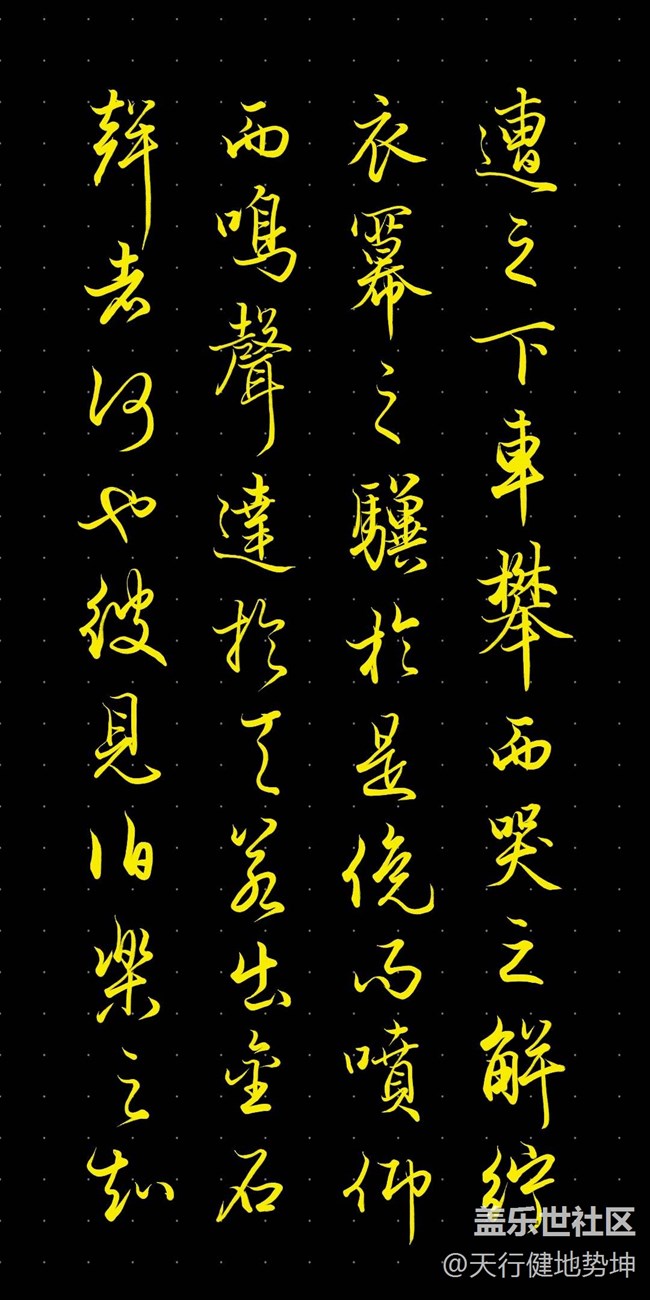 遭之下車攀而哭之解紵
衣羃之驥於是俛而噴仰
而鳴聲達於天若出金石
聲者何也彼見伯樂之知
盖乐世社区
@天行健地势坤